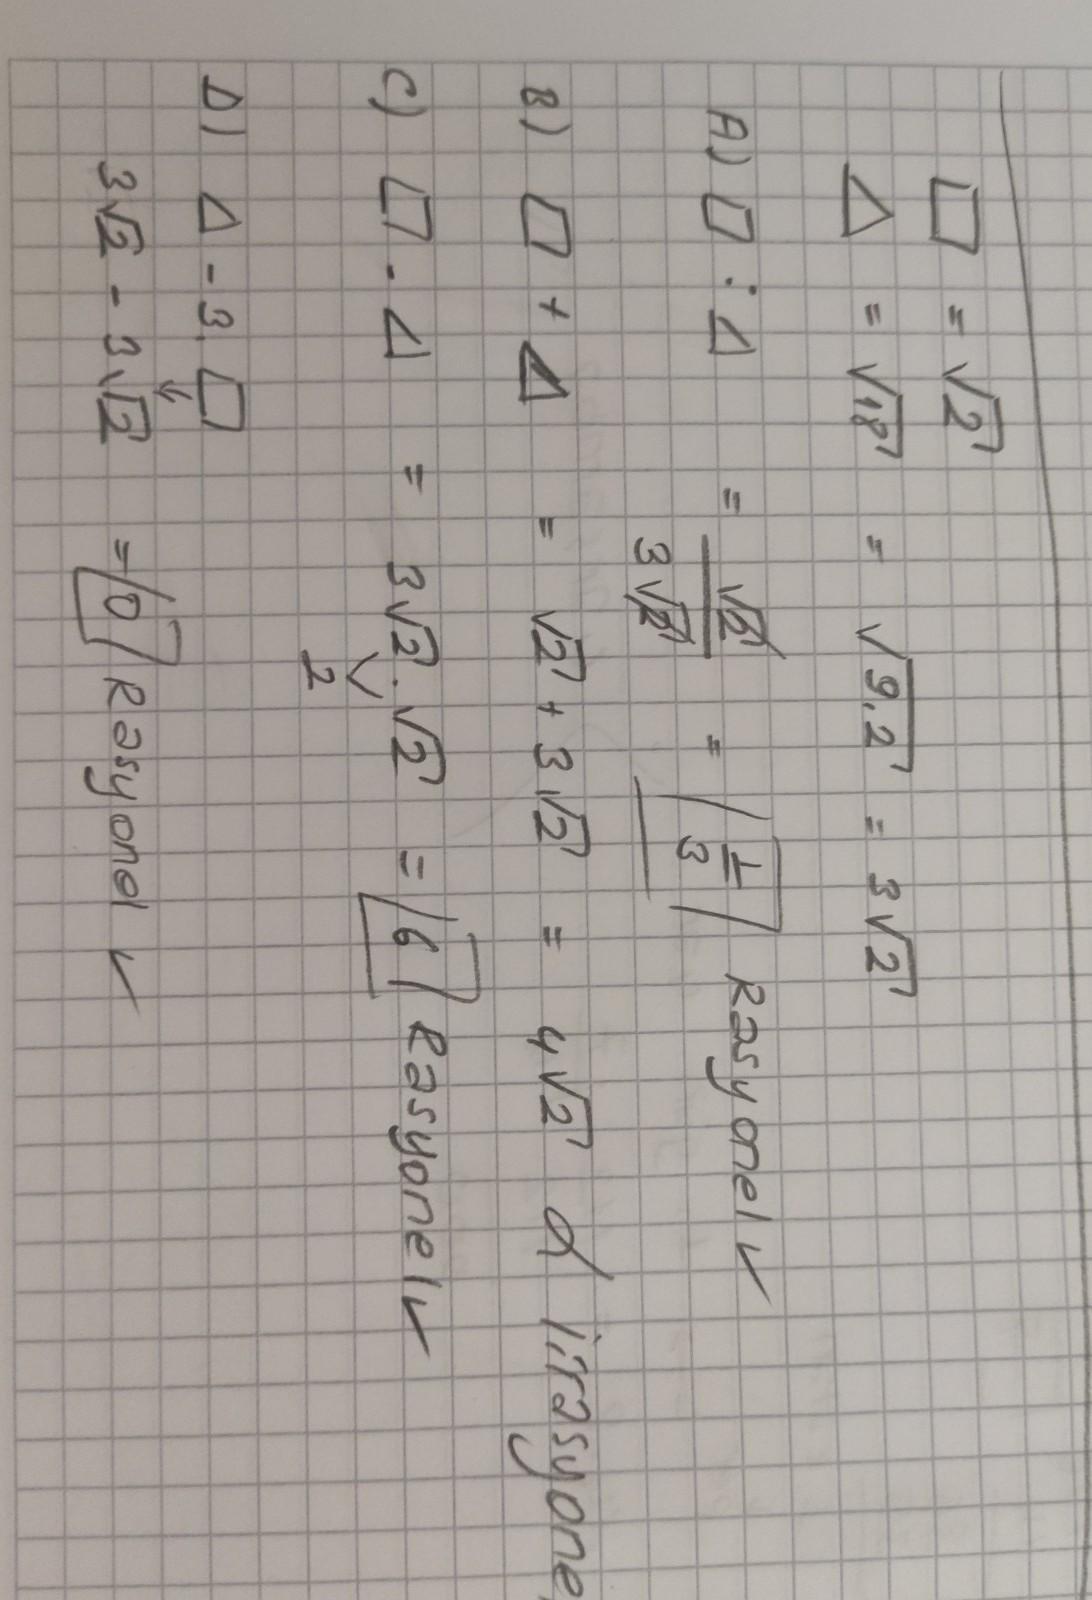 □ = √2
△ = √18 = √9.2 = 3√2
A) □ : △ = √2 / 3√2 = 1/3 Rasyonel ✓
B) □ + △ = √2 + 3√2 = 4√2 irrasyone
C) □ . △ = 3√2 . √2 = 6 Rasyonel ✓
2
D) △ - 3. □
3√2 - 3√2 = 0 Rasyonel ✓